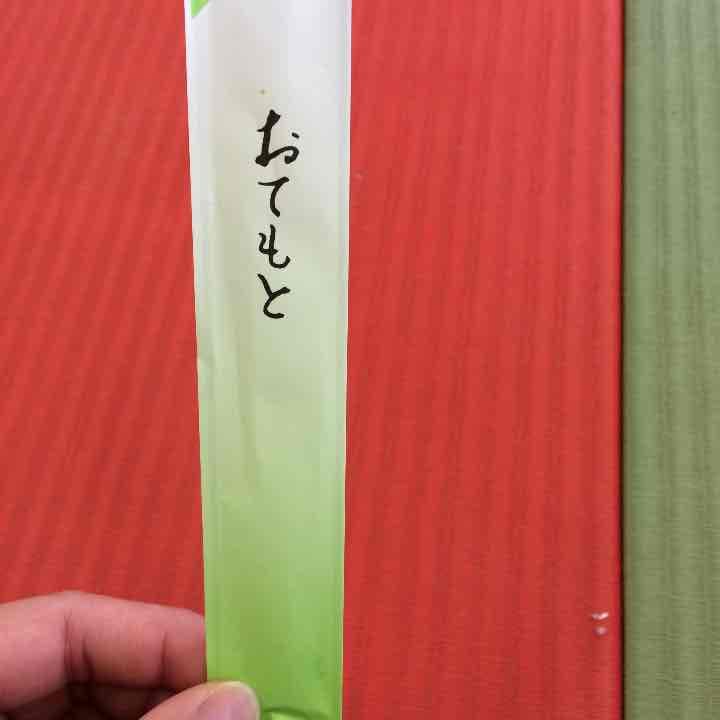 おてもと